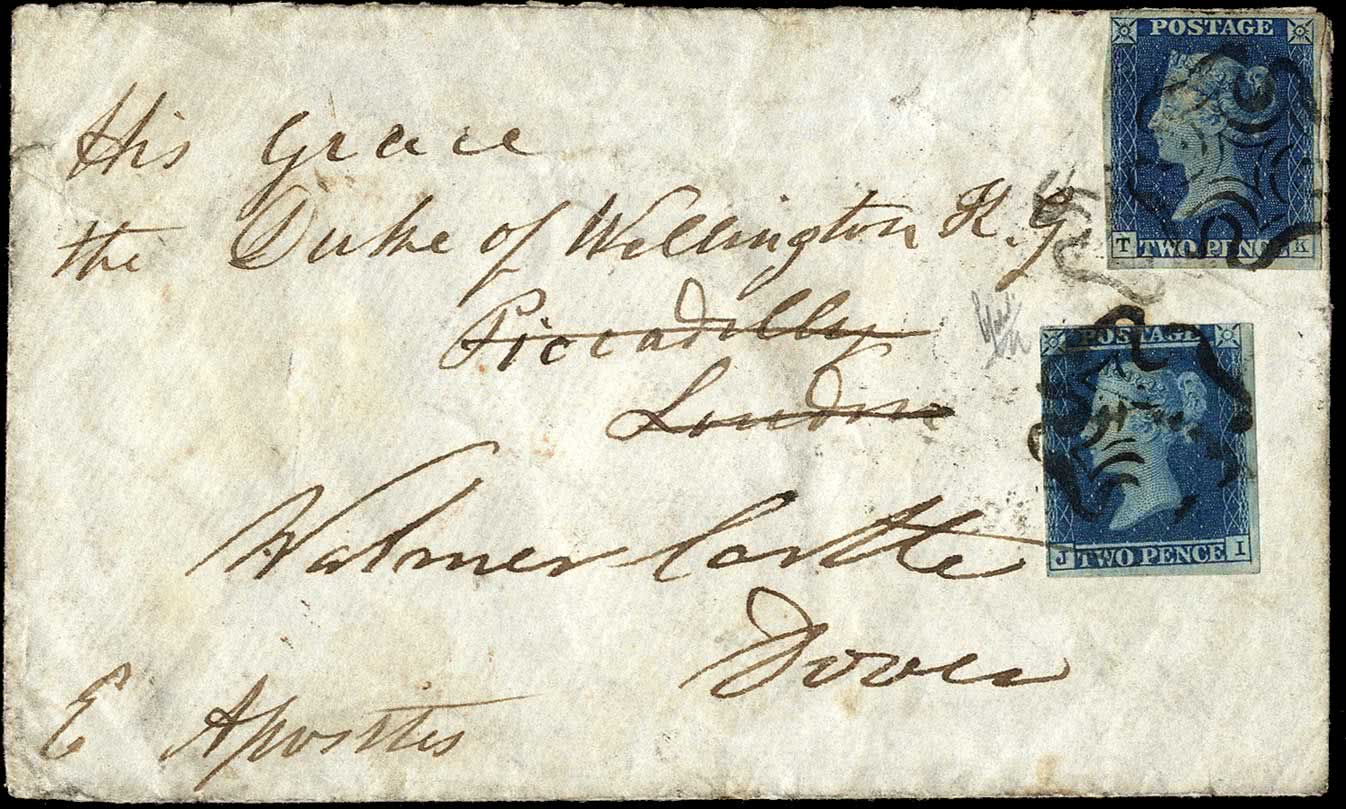 POSTAGE
T TWO PENCE K
His Grace
the Duke of Wellington K. G
Piccadilly
London
POSTAGE
J TWO PENCE I
Walmer Castle
Dover
E